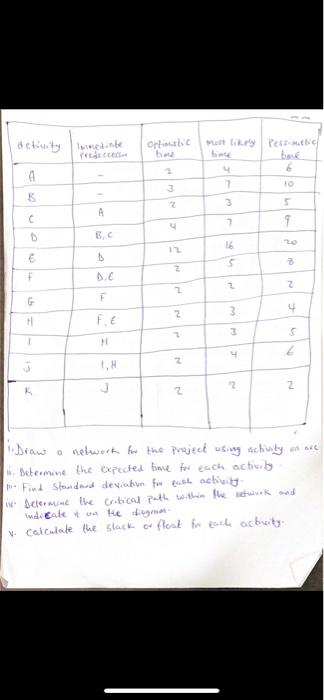 Activity Immediate Predecessor Optimistic time Most likely time Pessimistic time
A - 2 4 6
B - 3 7 10
C A 2 3 5
D B, C 4 7 9
E D 12 16 20
F D, C 2 5 8
G F 2 2 2
H F, E 2 3 4
I H 2 3 5
J I, H 2 4 6
K J 2 2 2
i. Draw a network for the project using activity on arc
ii. Determine the expected time for each activity.
iii. Find standard deviation for each activity.
iv. Determine the critical path within the network and
indicate it on the diagram.
v. Calculate the slack or float for each activity.